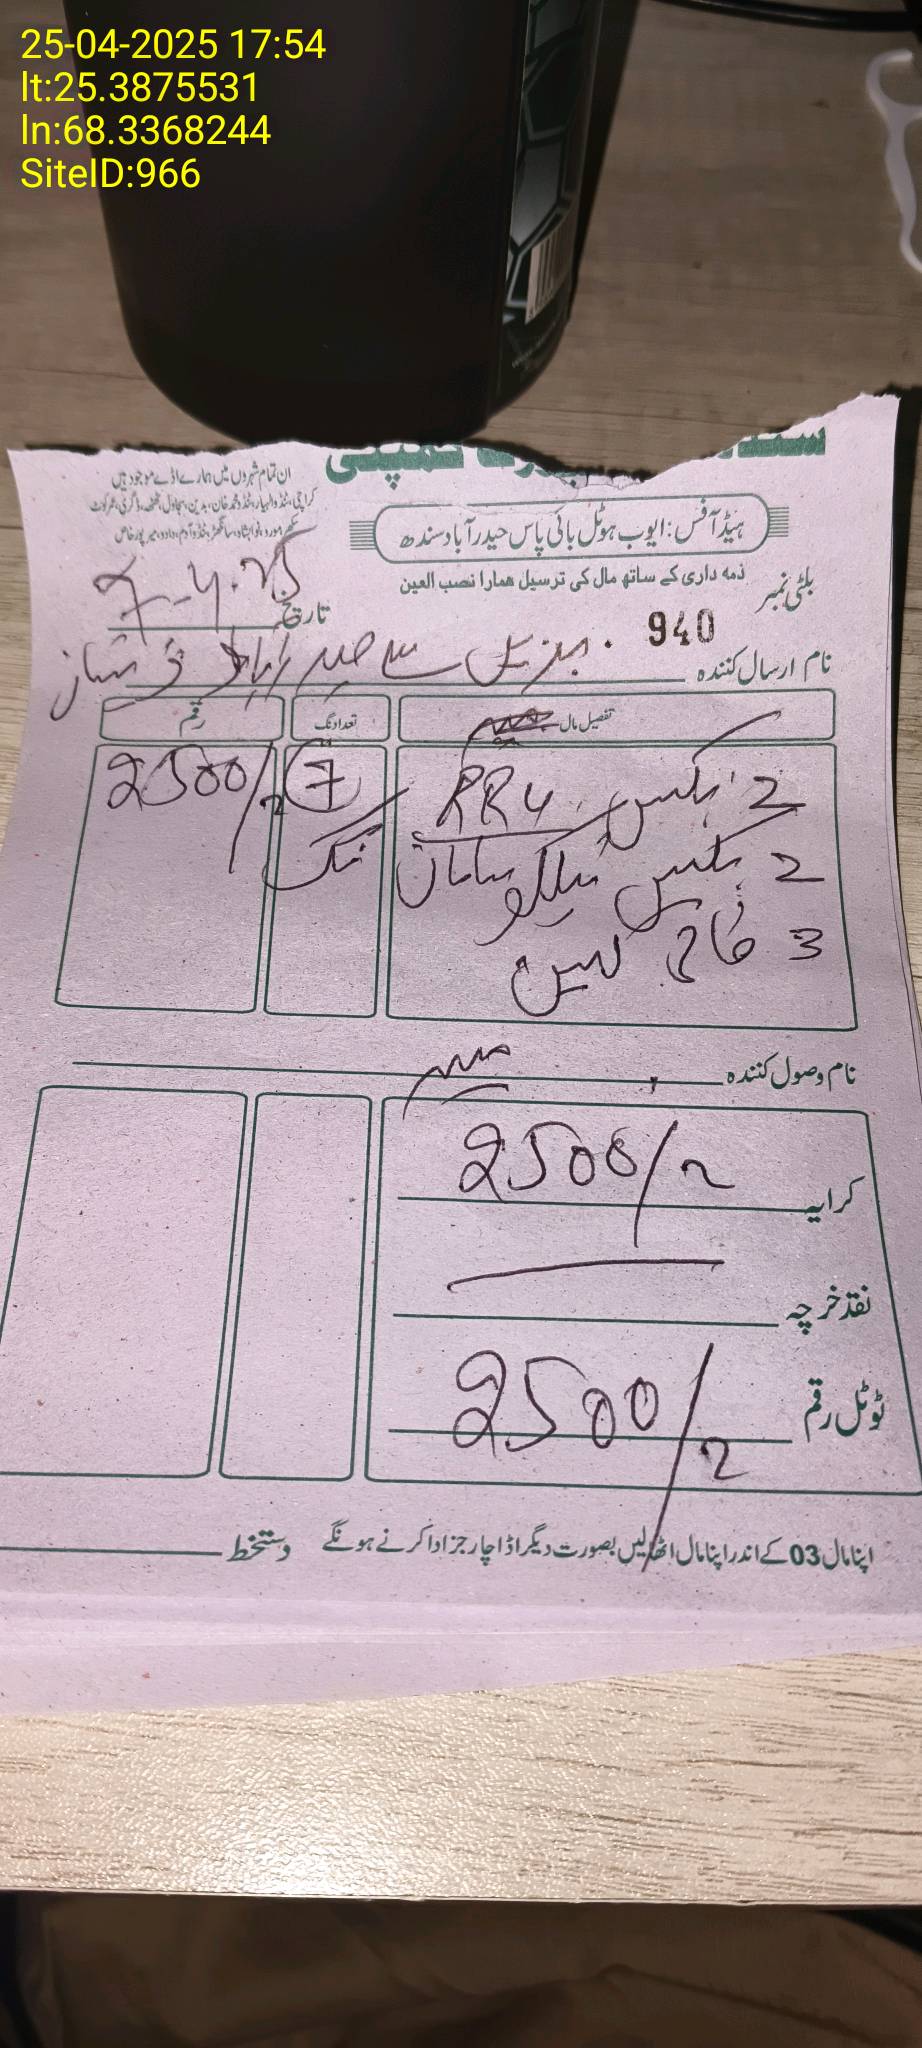 25-04-2025 17:54
lt:25.3875531
ln:68.3368244
SiteID:966
کمپنی
ان تمام شہروں میں ہمارے اڈے موجود ہیں
کراچی، ٹنڈوالہیار، ٹنڈومحمدخان، بدین، سجاول، ٹھٹھہ، ڈگری، عمرکوٹ
سکھر، مورو، نوابشاہ، سانگھڑ، ٹنڈوآدم، دادو، میرپورخاص
ہیڈ آفس: ایوب ہوٹل بائی پاس حیدرآباد سندھ
ذمہ داری کے ساتھ مال کی ترسیل ہمارا نصب العین
بلٹی نمبر 940
تاریخ 7-4-25
نام ارسال کنندہ سے
تفصیل مال تعداد نگ رقم
2 بکس RRU 7 نگ 2500/
2 بکس سامان
3
نام وصول کنندہ
کرایہ 2500/
نقد خرچہ
ٹوٹل رقم 2500/
اپنا مال 03 کے اندر اپنا مال اٹھا لیں بصورت دیگر اڈا چارجز ادا کرنے ہونگے دستخط